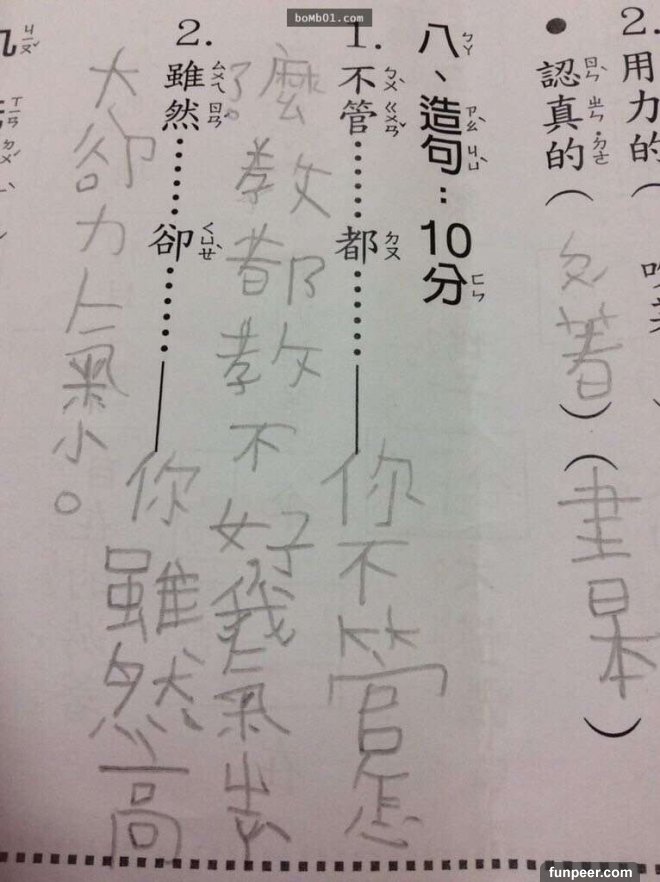 2.用力的（
●認真的（著）（書本）
八、造句：10分
1.不管……都……—你不管怎
麼教都教不好我氣
了。
2.雖然……卻……—你雖然高
大卻力氣小。